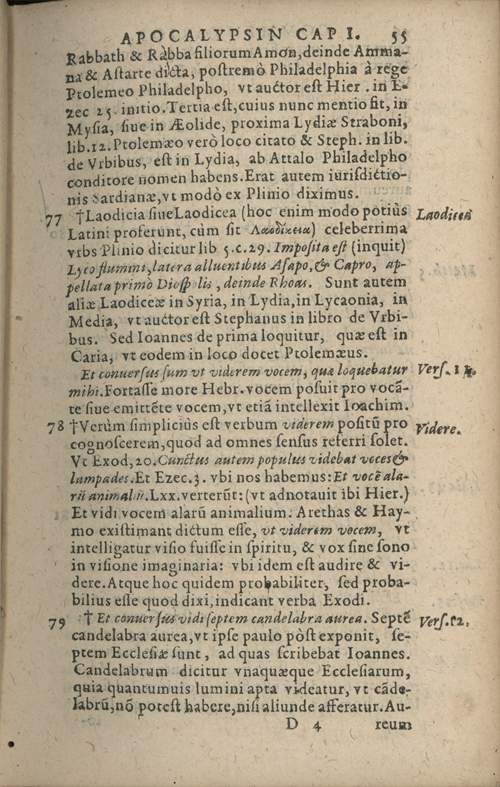 APOCALYPSIN CAP I. 55
Rabbath & Rabba filiorum Amon, deinde Amma-
na & Astarte dicta, postremò Philadelphia à rege
Ptolemeo Philadelpho, vt auctor est Hier. in E-
zec 25. initio. Tertia est, cuius nunc mentio fit, in
Mysia, siue in Æolide, proxima Lydiæ Straboni,
lib. 12. Ptolemæo verò loco citato & Steph. in lib.
de Vrbibus, est in Lydia, ab Attalo Philadelpho
conditore nomen habens. Erat autem iurisdictio-
nis Sardianæ, vt modò ex Plinio diximus.
77 †Laodicia siue Laodicea (hoc enim modo potiùs Laodicea
Latini proferunt, cùm sit Λαοδίκεια) celeberrima
vrbs Plinio dicitur lib 5. c. 29. Imposita est (inquit)
Lyco flumini, latera alluentibus Asapo, & Capro, ap-
pellata primò Diospolis, deinde Rhoas. Sunt autem
aliæ Laodiceæ in Syria, in Lydia, in Lycaonia, in
Media, vt auctor est Stephanus in libro de Vrbi-
bus. Sed Ioannes de prima loquitur, quæ est in
Caria, vt eodem in loco docet Ptolemæus.
Et conuersus sum vt viderem vocem, quæ loquebatur Vers. 12.
mihi. Fortasse more Hebr. vocem posuit pro vocã-
te siue emittẽte vocem, vt etiã intellexit Ioachim.
78 †Verùm simplicius est verbum viderem positũ pro Videre.
cognoscerem, quod ad omnes sensus referri solet.
Vt Exod, 20. Cunctus autem populus videbat voces &
lampades. Et Ezec. 3. vbi nos habemus: Et vocẽ ala-
rũ animaliũ. Lxx. verterũt: (vt adnotauit ibi Hier.)
Et vidi vocem alarũ animalium. Arethas & Hay-
mo existimant dictum esse, vt viderem vocem, vt
intelligatur visio fuisse in spiritu, & vox sine sono
in visione imaginaria: vbi idem est audire & vi-
dere. Atque hoc quidem probabiliter, sed proba-
bilius esse quod dixi, indicant verba Exodi.
79 † Et conuersus vidi septem candelabra aurea. Septẽ Vers. 12.
candelabra aurea, vt ipse paulo pòst exponit, se-
ptem Ecclesiæ sunt, ad quas scribebat Ioannes.
Candelabrum dicitur vnaquæque Ecclesiarum,
quia quantumuis lumini apta videatur, vt cãde-
labrũ, nõ potest habere, nisi aliunde afferatur. Au-
D 4 reum